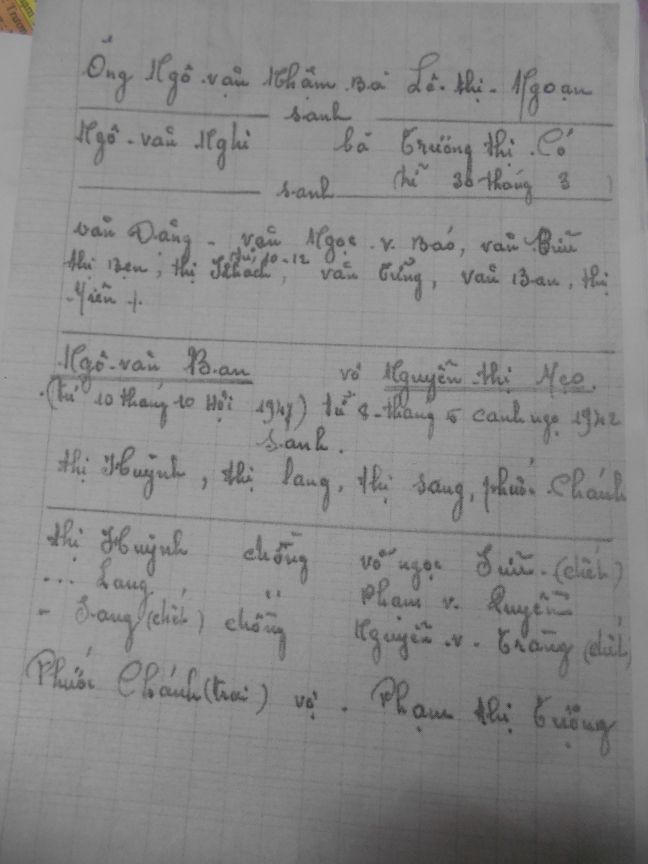 Ông Ngô văn Nhậm Bà Lê thị Ngoạn
sanh
Ngô văn Nghi bà Trương thị Có
(tử 30 tháng 3)
sanh
văn Đảng - văn Ngọc . v. Báo, văn Bửu
tử 10-12
thị Bẹn, thị Khách, văn Cửng, văn Ban, thị
Miễn +.
Ngô văn Ban vợ Nguyễn thị Mẹo.
(tử 10 tháng 10 Hợi 1947) tử 8 tháng 5 canh ngọ 1942
sanh.
thị Huỳnh, thị lang, thị sang, phước Chánh
thị Huỳnh chồng võ ngọc Sửu (chết)
... Lang " Pham v. Quyền
- Sang (chết) chồng Nguyễn . v . Trăng (chết)
Phước Chánh (trai) vợ . Phạm thị Tượng